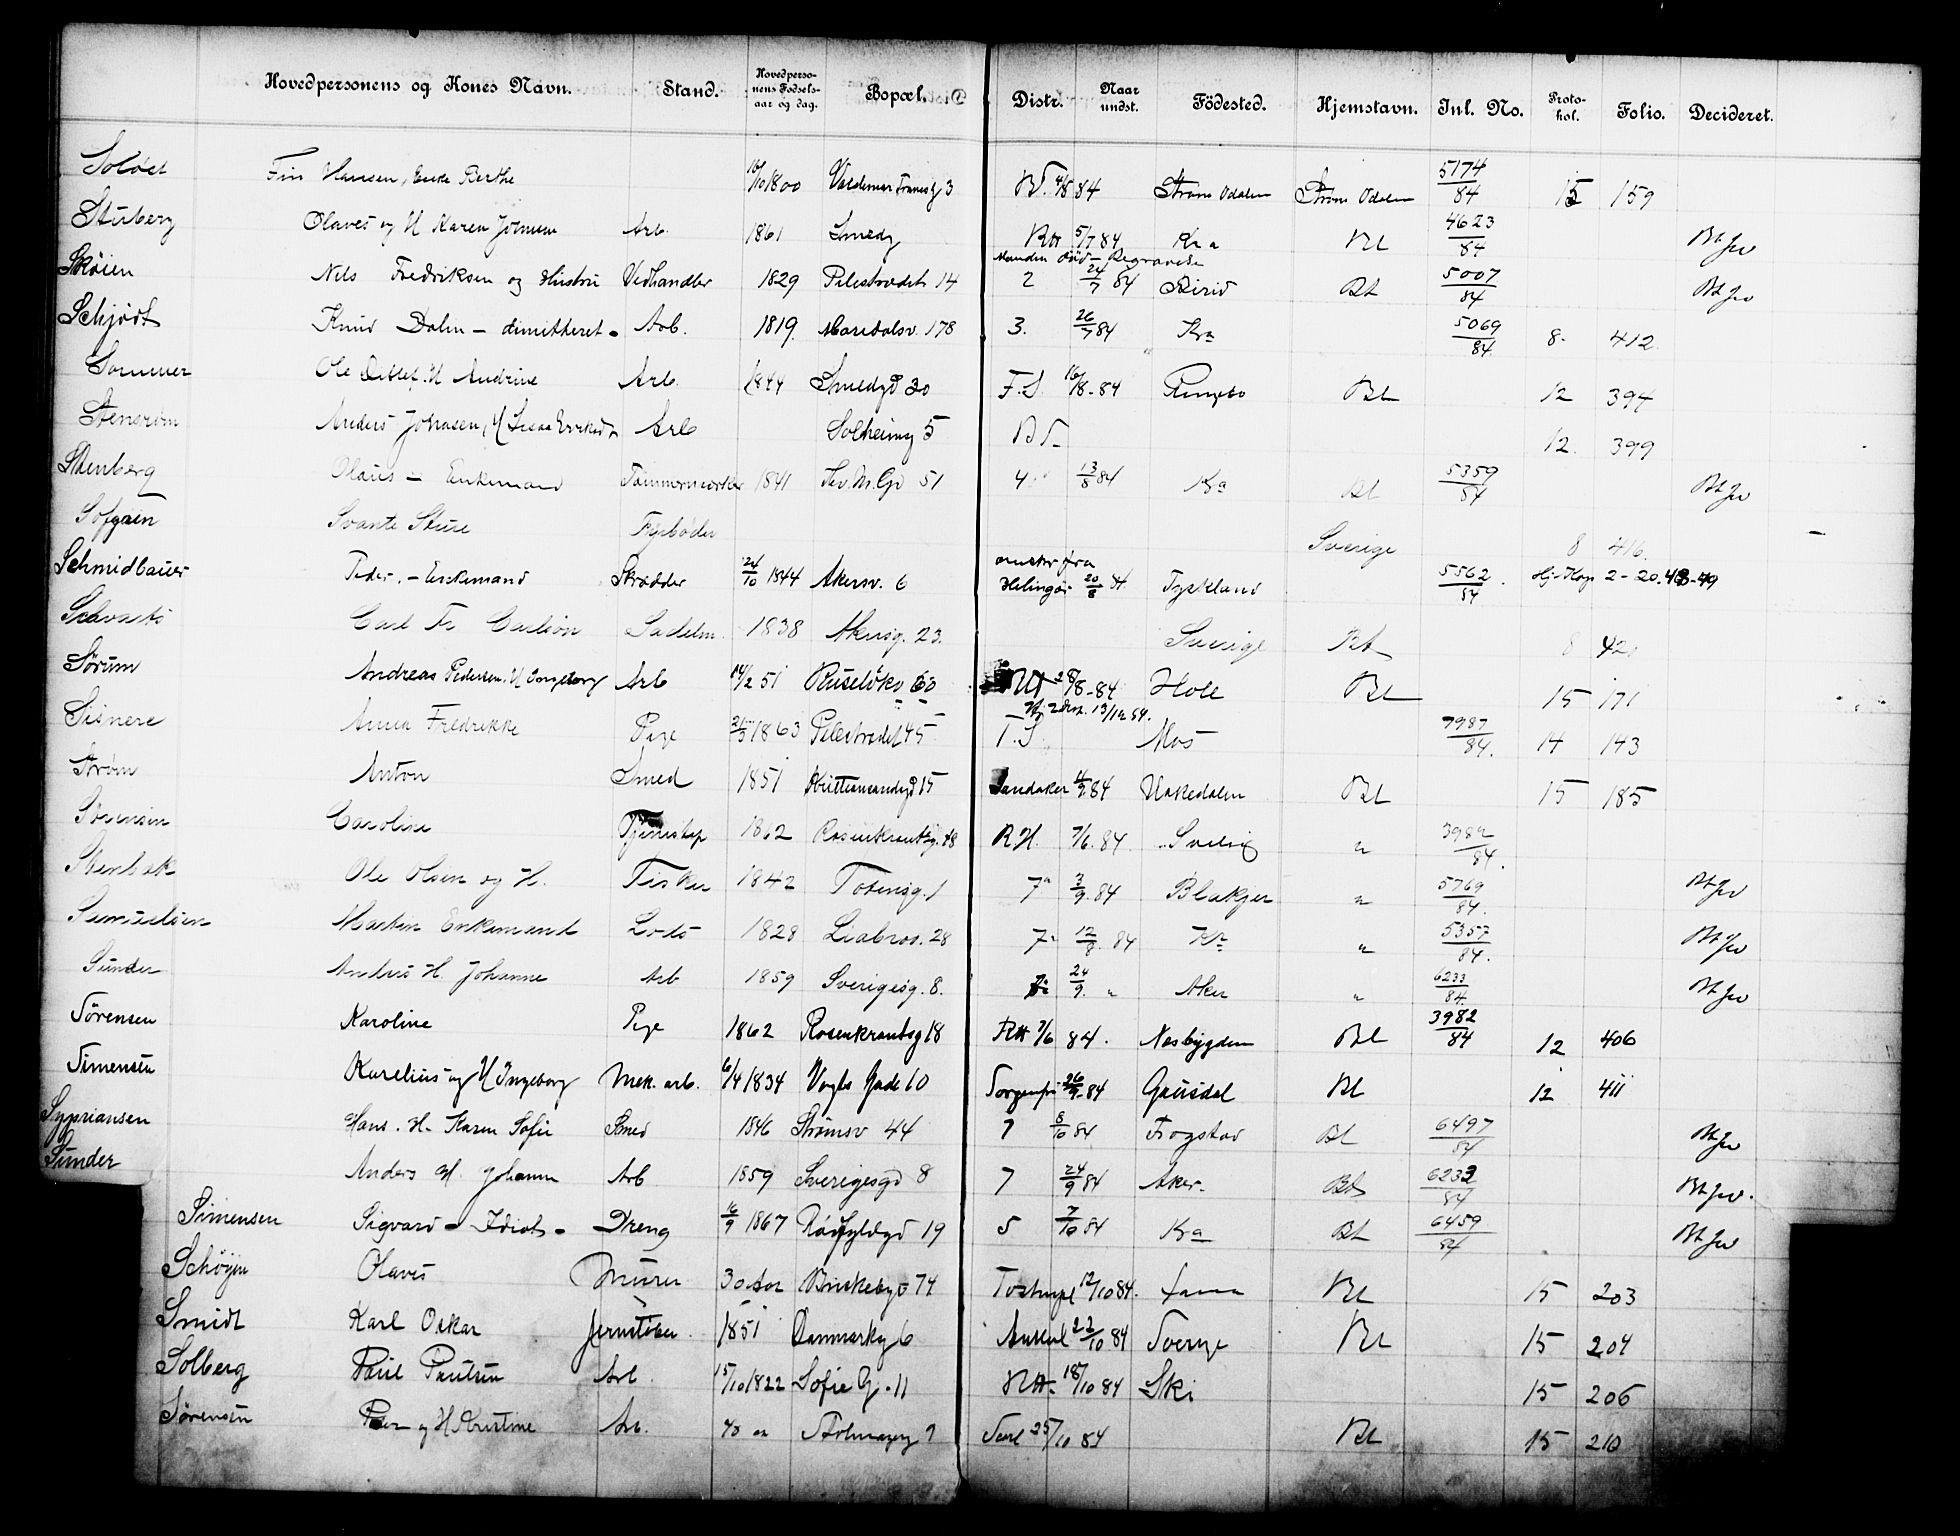 Hovedpersonens og Kones Navn. Stand. Hovedpersonens Fødselsaar og dag. Bopæl. Distr. Naar undst. Födested. Hjemstavn. Inl. No. Protokol. Folio. Decideret.
Soløst Fin Hansen, Enke Berthe 10/10 1800 Valdemar Thranesg 3 84 Strøm Odalen Strøm Odalen 5174/84 15 159
Stuberg Olaves og H Karen Arb. 1861 Smedg RH 5/7 84 Kra Bt 4623/84 Bt Jw
Manden død - Begravede
Skøien Nils Fredriksen og Hustru Vedhandler 1829 Pilestrædet 14 2 24/7 84 Birid Bt 5007/84 Bt Jw
Schjødt Knud Dahn - dimitteret - Arb. 1819 Maridalsv. 178 3. 26/7 84 Kra 5069/84 8. 412.
Sommer Ole Detlef. H Andrine Arb. 1844 Smedgd 30 F.S. 16/8-84 Ringebo Bt 12 394
Stenstrøm Anders Johnsen, H Arb Solheimg 5 12. 399
Stenberg Olaus - Enkemand Tømmermærker 1841 51 4 13/8 84 Kra Bt 5359/84 Bt Jw
Sofgren Svante Sture Fyrbøder Sverige 8 416.
Schmidbauer Peder. - Enkemand Skrædder 24/10 1844 Akersv. 6 Helingør 20/8 84 Tyskland 5562/84 2-20.48-49
Schvarts Carl Fr Carlson Sadelm. 1838 Akersg. 23. Sverige Bt 8 420
Sørum Andreas Pedersen, H Ingeborg Arb 14/2 51 Ruseløkv 60 28/8-84 Hole Bt 15 171
13/12 84.
Sisnere Anna Fredrikke Pige 21/5 1863 Pilestrædet 45 T.S. Mos 7987/84. 14 143
Strøm Anton Smed 1851 Kristiansandgd 15 Sandaker 4/9 84 Hakedalen Bt 15 185
Sørensen Caroline Tjenestep 1862 Rosenkrantzg. 18 R.H. 7/6. 84 Sverig " 3982/84.
Stenbæk Ole Olsen og H. Fisker 1842 Totensg. 1 7a 3/9. 84 Blakjer " 5769/84. Bt Jw
Samuelsen Martin Enkemand Lods 1828 Liabrov. 28 7a 12/8. 84 Kr " 5357/84. Bt Jw
Sunder Anders H. Johanne Arb 1859 Sverigesg. 8. 7a 24/9. " Aker " 6233/84. Bt Jw
Sørensen Karoline Pige 1862 Rosenkrantzg 18 RH 7/6 84. Nesbygden Bt 3982/84 12 406
Simensen Karelius og H Ingeborg Mek. arb. 6/4 1834 Vogts Gade 10 Sorgenfri 26/9-84 Gausdal Bt 12 411
Sypriansen Hans. H. Karen Sofie Smed 1846 Strømsv 44 7 8/10 84 Frogstad Bt 6497/84 Bt Jw
Sunder Anders H. Johanne Arb 1859 Sverigesgd 8 7 24/9 84 Aker. Bt 6233/84 Bt Jw.
Simensen Sigvard - Idiot - Dreng 16/9 1867 19 5 7/10 84 Kra Bt 6459/84 Bt Jw
Schøyen Olaves Murer 30 Aar Briskebygd 74 12/10 84. Bt 15 203
Smidt Karl Oskar Jernstøber 1851 Danmarksg 6 Ankerl 22/10 84 Sverge Bt 15 204
Solberg Paul Paulsen Arb. 15/10 1822 Sofie G. 11 RH. 18/10 84 Ski 15 206
Sørensen Peder og H Kristine Arb. 40 aa 25/10 84 Bt 15 210